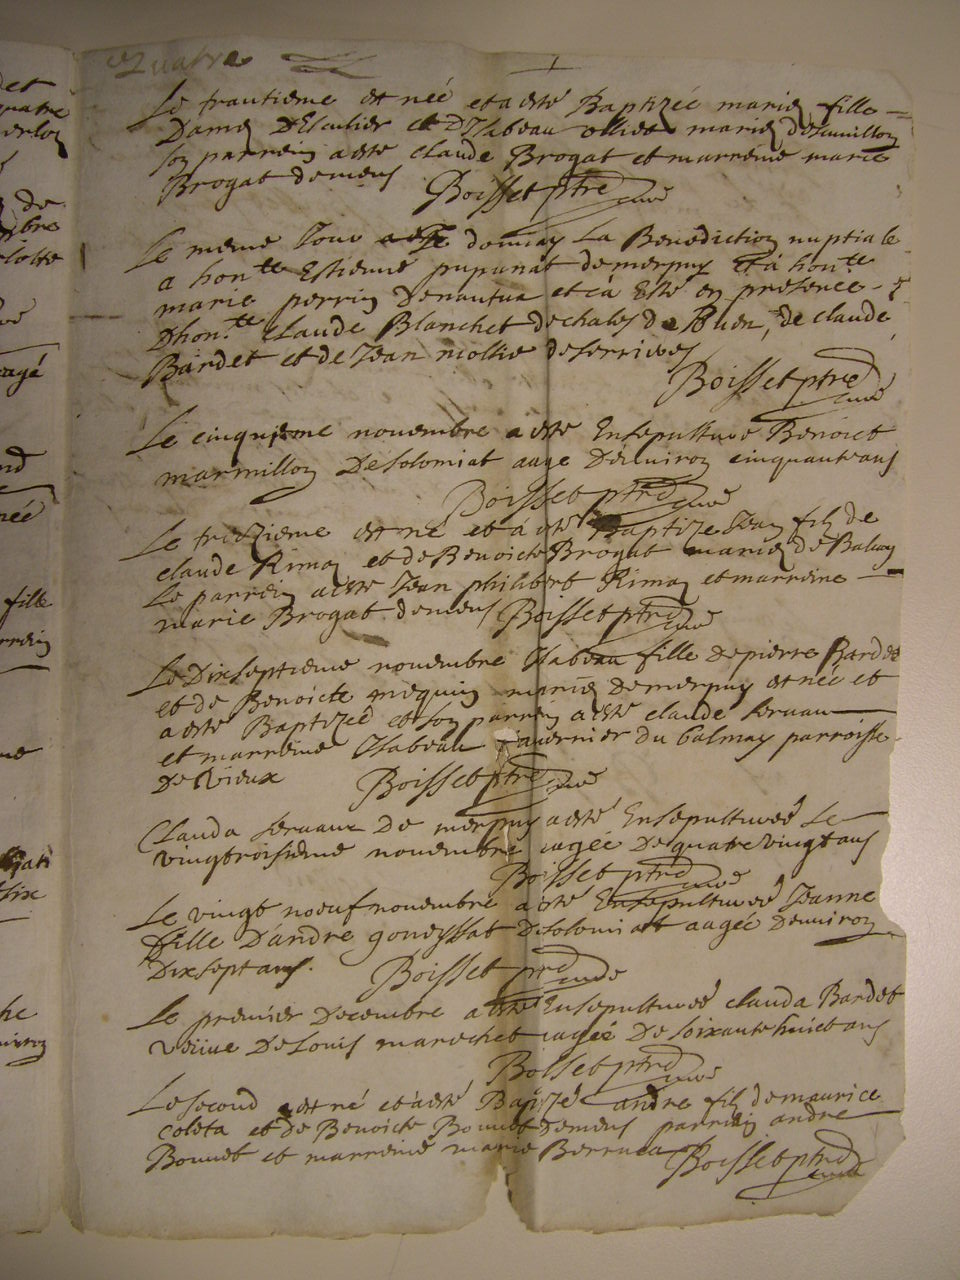 quatre
Le trantieme est née et a esté Baptizée marie fille
D'Isabeau mariez
son parrein a esté claude Brogat et marreine marie
Brogat demens Boisset ptre curé
Le meme Jour a esté La Benediction nuptiale
a hon.te Estienne pupunat de merpuy et a hon.te
marie perrin Denantua et ça Esté en présence
Dhon.te claude Blanchet de chales de claude
Bardet et de Jean mollie deserrieres
Boisset ptre
curé
Le cinquieme novembre a esté Ensepulturé Benoict
marmillon Desolomiat aagé D'enuiron cinquante ans
Boisset ptre curé
Le treizieme est né et a esté Baptizé Jean fils de
claude Rimoz et de Benoicte Brogat mariez de
Le parrein a esté Jean philibert Rimoz et marreine
marie Brogat demens Boisset ptre curé
Le Dixseptieme novembre Isabeau fille de pierre Bardet
et de Benoicte mariez demerpuy est née et
a esté Baptizée et son parrein a esté claude seruau
et marreine Isabeau tauernier du balmay parroisse
De Vieux Boisset ptre curé
Clauda seruaux De merpuy a esté Ensepulturéé Le
vingtroisieme novembre aagéé De quatre vingt ans
Boisset ptre curé
Le vingt noeuf novembre a esté Ensepulturéé Jeanne
fille D'andre gouyssat Desolomiat aagéé Denuiron
Dixsept ans. Boisset ptre curé
Le premier Decembre a esté Ensepulturéé clauda Bardet
veüue De Louis marechet aagéé De soixante huict ans
Boisset ptre curé
Le second est né et a esté Baptizé andre fils de maurice
coleta et de Benoicte Bouuet demens parrein andre
Bouuet et marreine marie Berruca Boisset ptre
curé